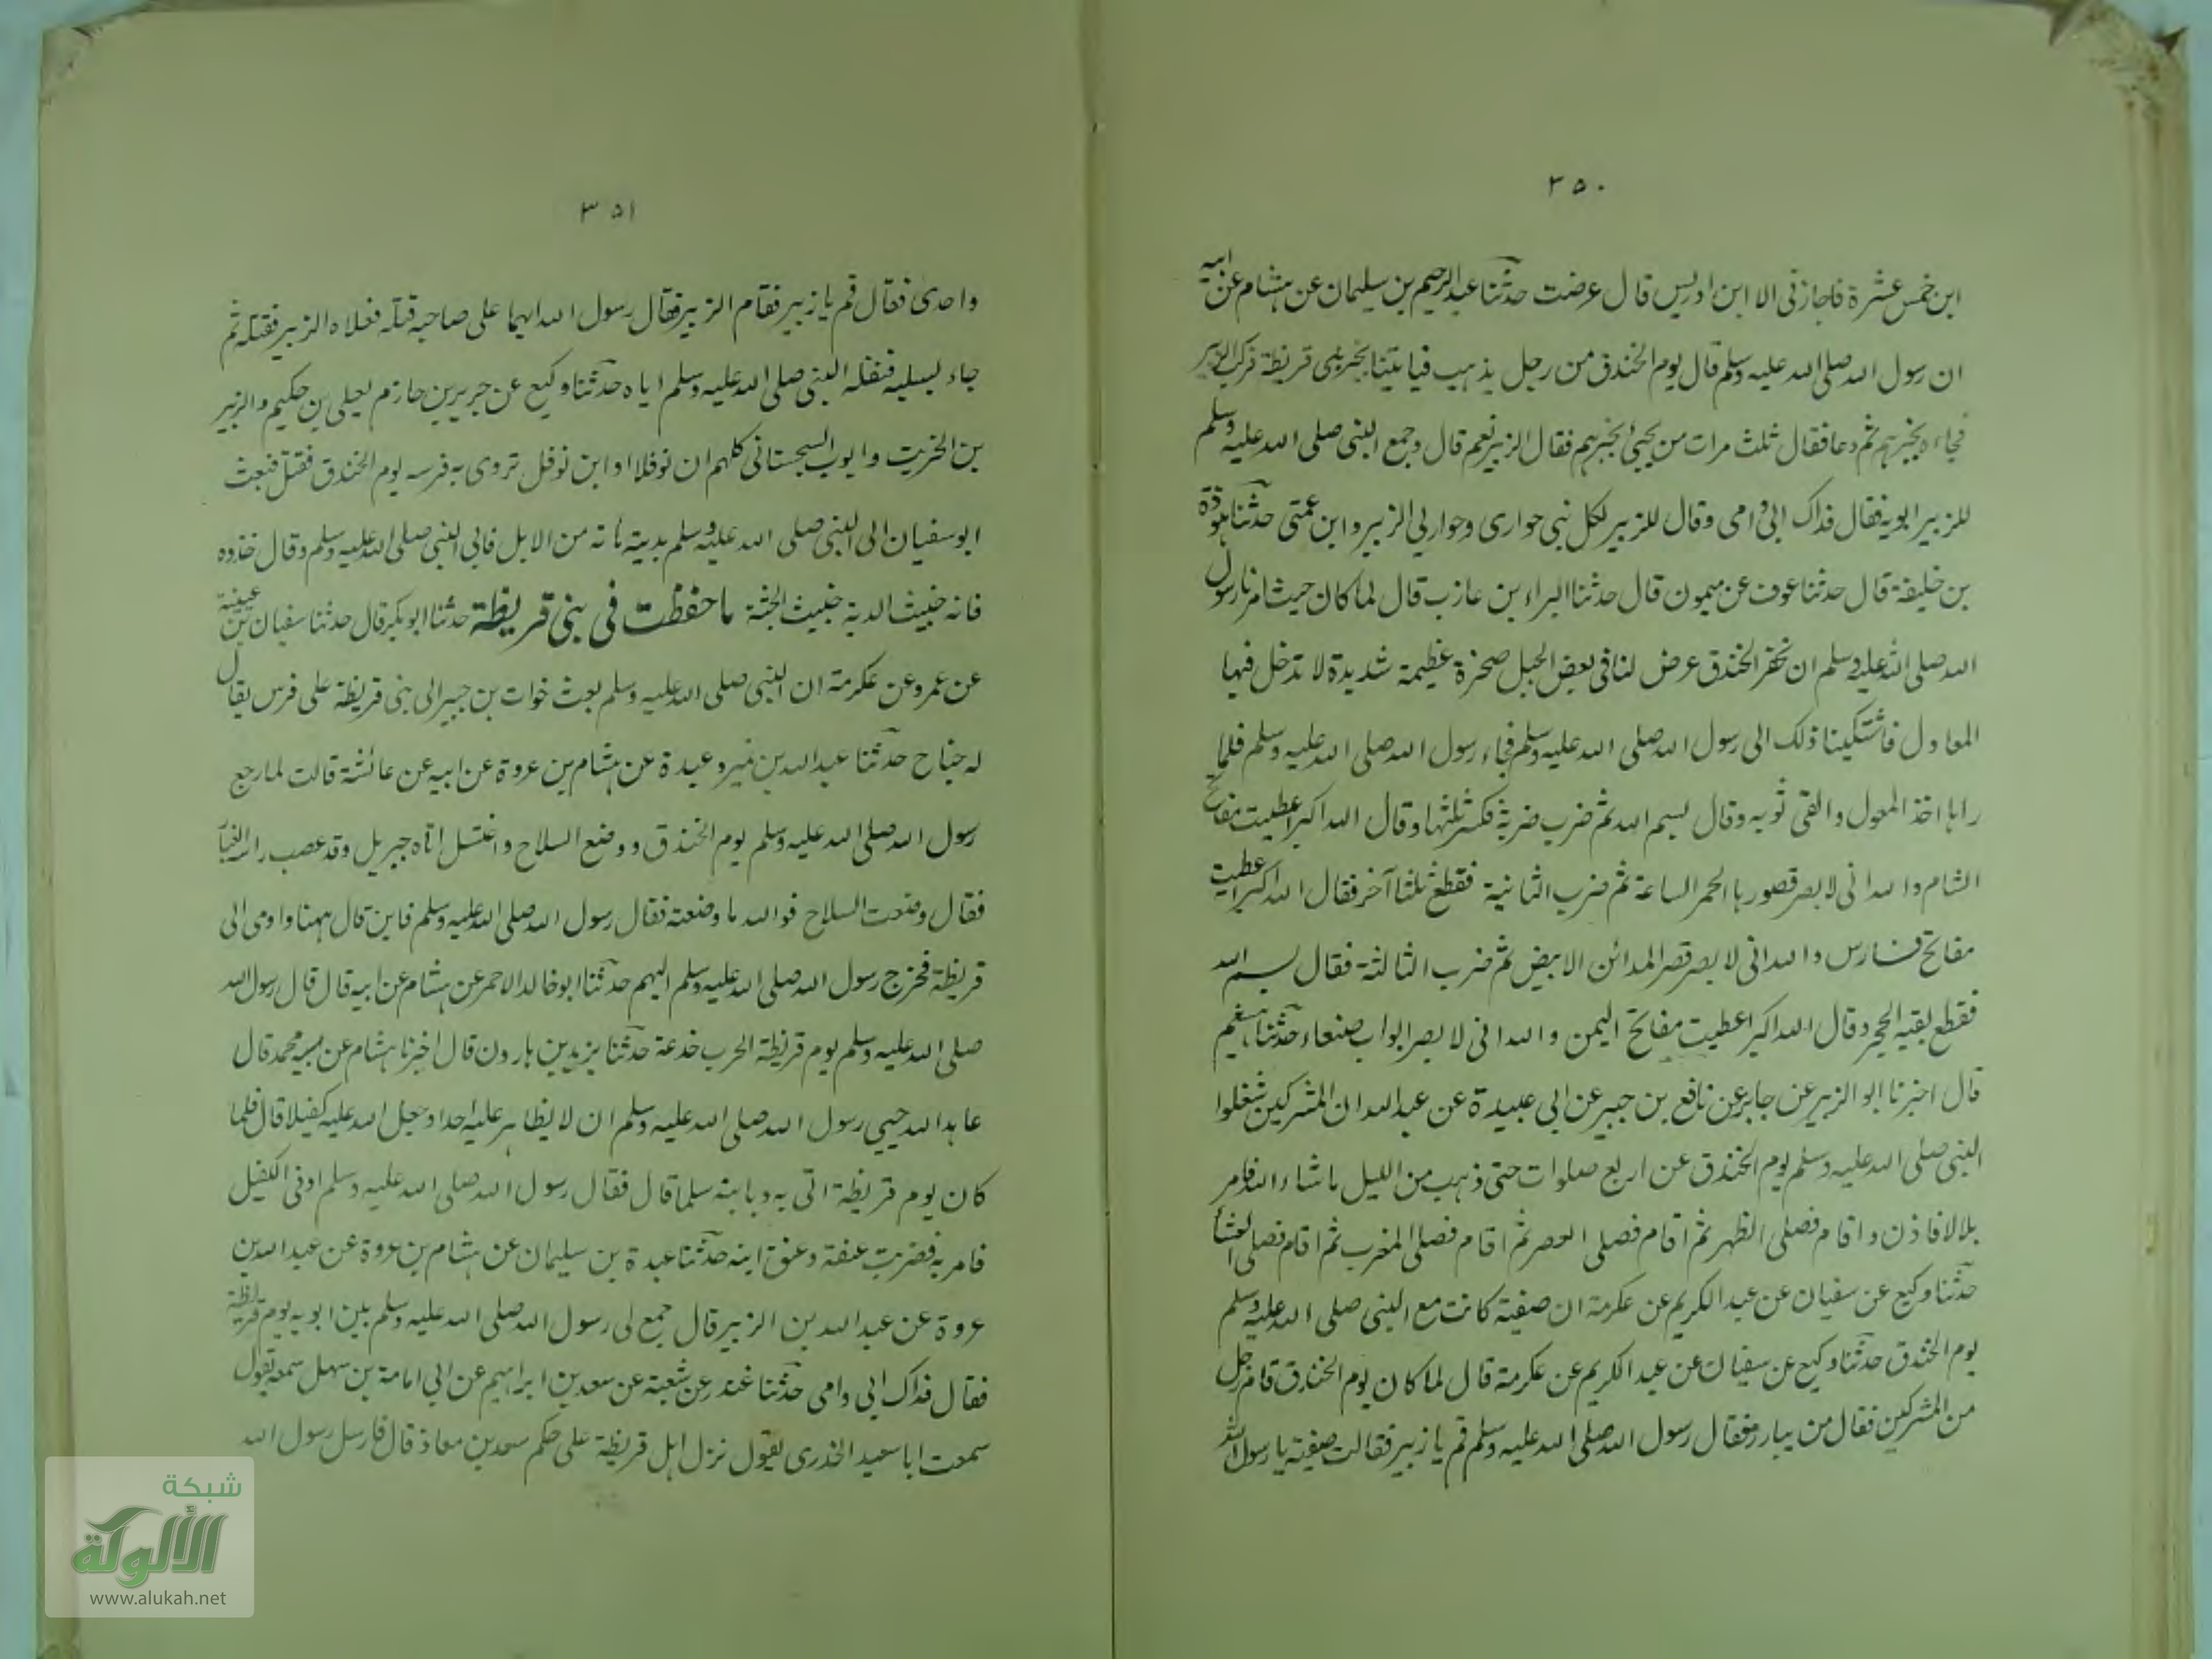 ٣٥٠
ابن خمس عشرة فاجازنى الا ابن ادريس قال عرضت حدثنا عبدالرحيم بن سليمان عن هشام عن ابيه
ان رسول الله صلى الله عليه وسلم قال يوم الخندق من رجل يذهب فياتينا بخبر بنى قريظة فركب الزبير
فجاءه بخبرهم ثم دعا فقال ثلث مرات من يجيئ بخبرهم فقال الزبير نعم قال وجمع النبى صلى الله عليه وسلم
للزبير ابويه فقال فداك ابى وامى وقال للزبير لكل نبى حوارى وحواريى الزبير وابن عمتى حدثنا هوذة
بن خليفة قال حدثنا عوف عن ميمون قال حدثنا البراء بن عازب قال لما كان حيث امرنا رسول
الله صلى الله عليه وسلم ان نحفر الخندق عرض لنا فى بعض الجبل صخرة عظيمة شديدة لا تدخل فيها
المعاول فاشتكينا ذلك الى رسول الله صلى الله عليه وسلم فجاء رسول الله صلى الله عليه وسلم فلما
راها اخذ المعول والقى ثوبه وقال بسم الله ثم ضرب ضربة فكسر ثلثها وقال الله اكبر اعطيت مفاتح
الشام والله انى لابصر قصورها الحمر الساعة ثم ضرب الثانية فقطع ثلثا آخر فقال الله اكبر اعطيت
مفاتح فارس والله انى لابصر قصر المدائن الابيض ثم ضرب الثالثة فقال بسم الله
فقطع بقية الحجر وقال الله اكبر اعطيت مفاتح اليمن والله انى لابصر ابواب صنعاء حدثنا هشيم
قال اخبرنا ابو الزبير عن جابر عن نافع بن جبير عن ابى عبيدة عن عبدالله ان المشركين شغلوا
النبى صلى الله عليه وسلم يوم الخندق عن اربع صلوات حتى ذهب من الليل ما شاء الله فامر
بلالا فاذن واقام فصلى الظهر ثم اقام فصلى العصر ثم اقام فصلى المغرب ثم اقام فصلى العشا
حدثنا وكيع عن سفيان عن عبد الكريم عن عكرمة ان صفية كانت مع النبى صلى الله عليه وسلم
يوم الخندق حدثنا وكيع عن سفيان عن عبد الكريم عن عكرمة قال لما كان يوم الخندق قام رجل
من المشركين فقال من يبارز فقال رسول الله صلى الله عليه وسلم قم يا زبير فقالت صفية يا رسول الله
٣٥١
واحدى فقال قم يا زبير فقام الزبير فقال رسول الله ايهما على صاحبه قتله فعلاه الزبير فقتله ثم
جاء بسلبه فنفله النبى صلى الله عليه وسلم اياه حدثنا وكيع عن جرير بن حازم يعلى بن حكيم والزبير
بن الخريت وايوب السجستانى كلهم ان نوفلا او ابن نوفل تردى به فرسه يوم الخندق فقتل فبعث
ابو سفيان الى النبى صلى الله عليه وسلم بديته مائة من الابل فابى النبى صلى الله عليه وسلم وقال خذوه
فانه خبيث الدية خبيث الجثة ما حفظت فى بنى قريظة حدثنا ابو بكر قال حدثنا سفيان بن عيينة
عن عمرو عن عكرمة ان النبى صلى الله عليه وسلم بعث خوات بن جبير الى بنى قريظة على فرس يقال
له جناح حدثنا عبدالله بن نمير وعبدة عن هشام بن عروة عن ابيه عن عائشة قالت لما رجع
رسول الله صلى الله عليه وسلم يوم الخندق ووضع السلاح واغتسل اتاه جبريل وقد عصب راسه الغبار
فقال وضعت السلاح فوالله ما وضعته فقال رسول الله صلى الله عليه وسلم فاين قال ههنا واومى الى
قريظة فخرج رسول الله صلى الله عليه وسلم اليهم حدثنا ابو خالد الاحمر عن هشام عن ابيه قال قال رسول الله
صلى الله عليه وسلم يوم قريظة الحرب خدعة حدثنا يزيد بن هارون قال اخبرنا هشام عن محمد قال
عاهد الله حيى رسول الله صلى الله عليه وسلم ان لا يظاهر عليه احدا وجعل الله عليه كفيلا قال فلما
كان يوم قريظة اتى به وبابنه سلما قال فقال رسول الله صلى الله عليه وسلم اوفى الكفيل
فامر به فضربت عنقه وعنق ابنه حدثنا عبدة بن سليمان عن هشام بن عروة عن عبدالله بن
عروة عن عبدالله بن الزبير قال جمع لى رسول الله صلى الله عليه وسلم بين ابويه يوم قريظة
فقال فداك ابى وامى حدثنا غندر عن شعبة عن سعد بن ابراهيم عن ابى امامة بن سهل سمعه يقول
سمعت ابا سعيد الخدرى يقول نزل اهل قريظة على حكم سعد بن معاذ قال فارسل رسول الله
شبكة
الألوكة
www.alukah.net